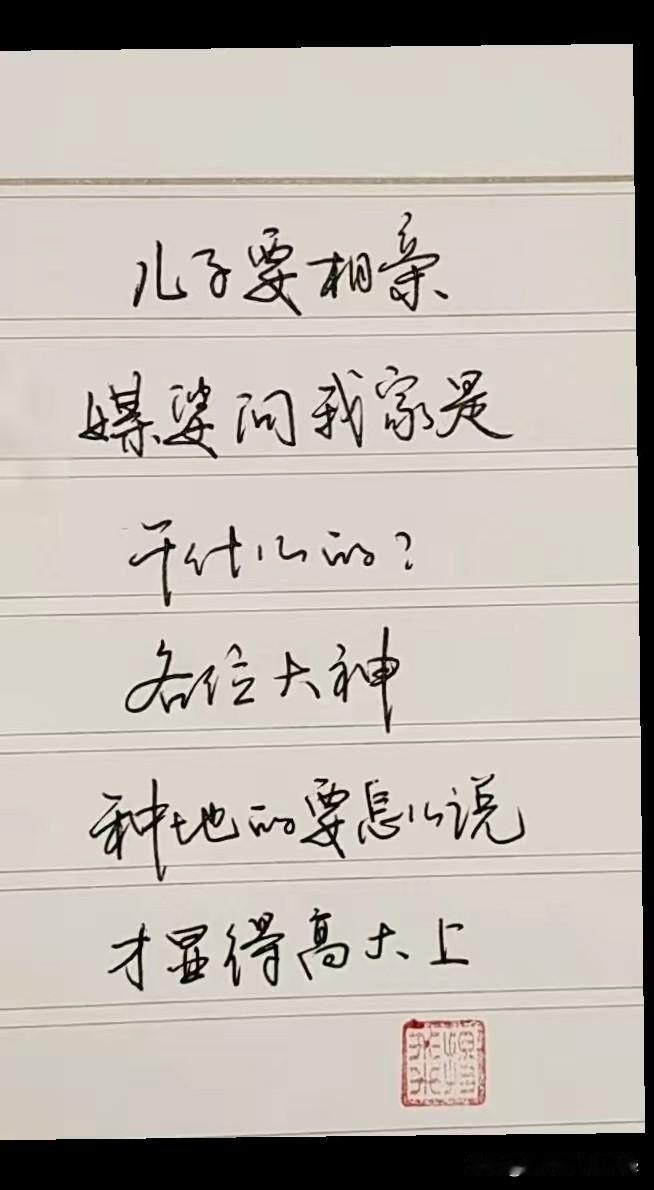 儿子要相亲
媒婆问我家是
干什么的?
各位大神
种地的要怎么说
才显得高大上